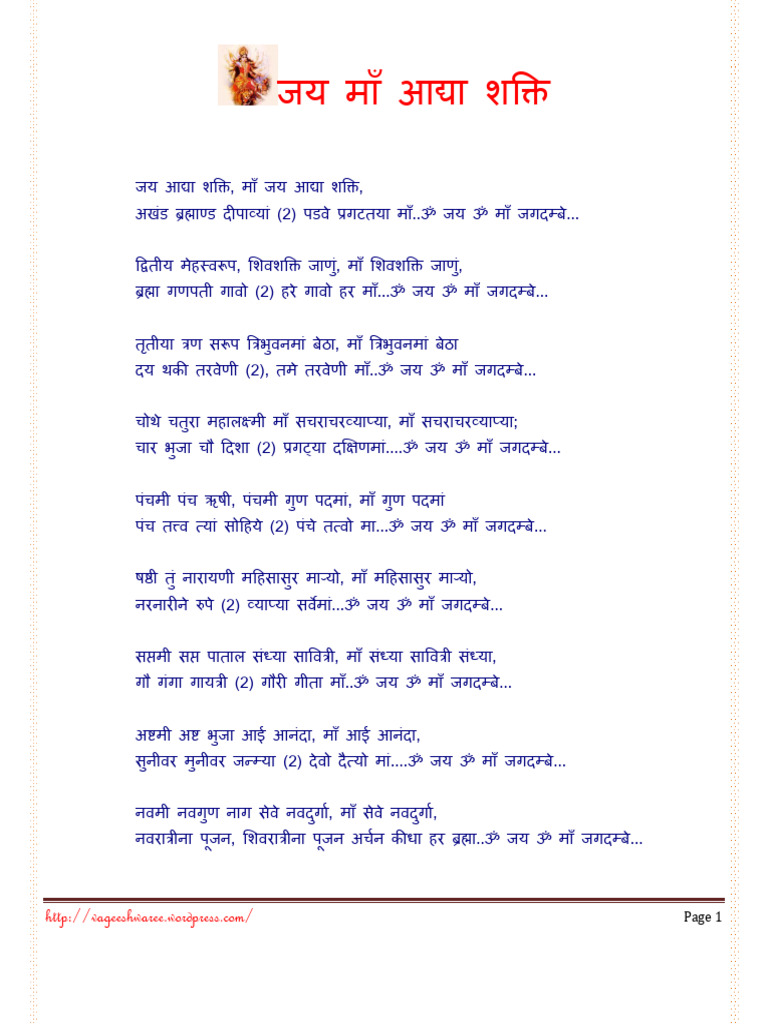 जय माँ आद्या शक्ति
जय आद्या शक्ति, माँ जय आद्या शक्ति,
अखंड ब्रह्माण्ड दीपाव्यां (2) पडवे प्रगटतया माँ..ॐ जय ॐ माँ जगदम्बे...
द्वितीय मेहस्वरूप, शिवशक्ति जाणुं, माँ शिवशक्ति जाणुं,
ब्रह्मा गणपती गावो (2) हरे गावो हर माँ...ॐ जय ॐ माँ जगदम्बे...
तृतीया त्रण सरूप त्रिभुवनमां बेठा, माँ त्रिभुवनमां बेठा
दय थकी तरवेणी (2), तमे तरवेणी माँ..ॐ जय ॐ माँ जगदम्बे...
चोथे चतुरा महालक्ष्मी माँ सचराचरव्याप्या, माँ सचराचरव्याप्या;
चार भुजा चौ दिशा (2) प्रगट्या दक्षिणमां....ॐ जय ॐ माँ जगदम्बे...
पंचमी पंच ऋषी, पंचमी गुण पदमां, माँ गुण पदमां
पंच तत्त्व त्यां सोहिये (2) पंचे तत्वो मा...ॐ जय ॐ माँ जगदम्बे...
षष्ठी तुं नारायणी महिसासुर माऱ्यो, माँ महिसासुर माऱ्यो,
नरनारीने रुपे (2) व्याप्या सर्वेमां...ॐ जय ॐ माँ जगदम्बे...
सप्तमी सप्त पाताल संध्या सावित्री, माँ संध्या सावित्री संध्या,
गौ गंगा गायत्री (2) गौरी गीता माँ..ॐ जय ॐ माँ जगदम्बे...
अष्टमी अष्ट भुजा आई आनंदा, माँ आई आनंदा,
सुनीवर मुनीवर जन्म्या (2) देवो दैत्यो मां....ॐ जय ॐ माँ जगदम्बे...
नवमी नवगुण नाग सेवे नवदुर्गा, माँ सेवे नवदुर्गा,
नवरात्रीना पूजन, शिवरात्रीना पूजन अर्चन कीधा हर ब्रह्मा..ॐ जय ॐ माँ जगदम्बे...
http://vageeshwaree.wordpress.com/ Page 1